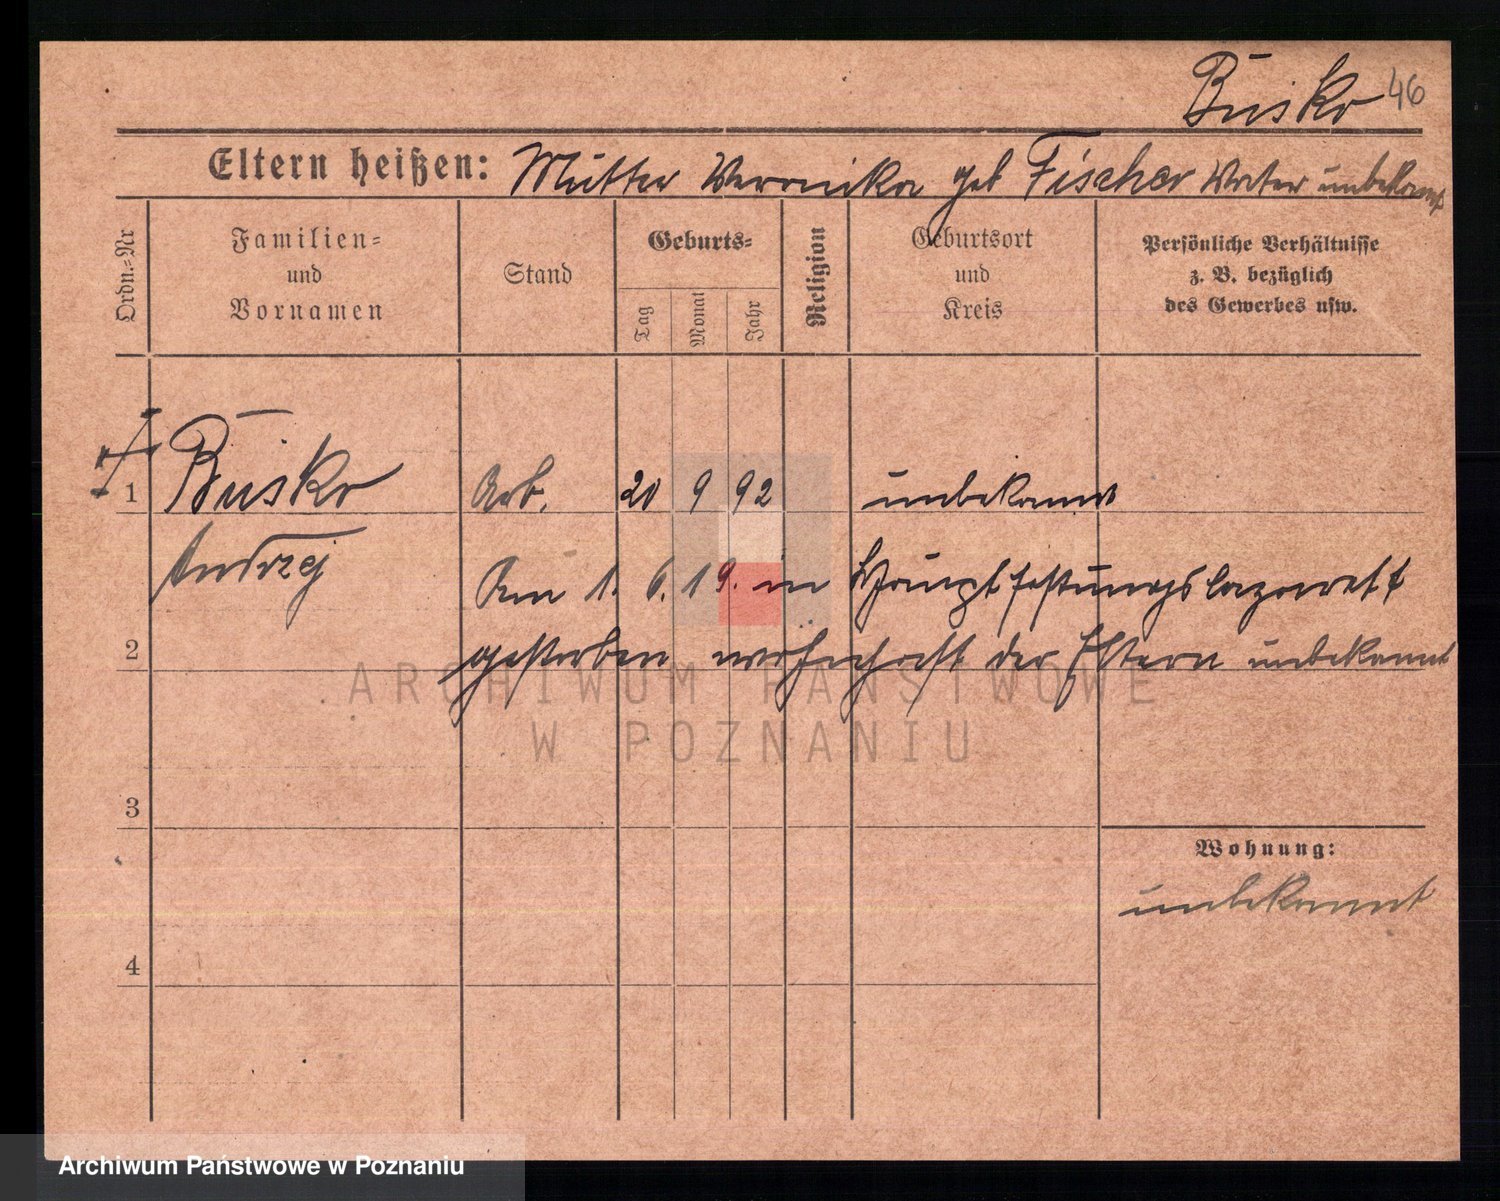 Busko 46
Eltern heißen: Mutter Weronika geb Fischer Vater unbekannt
Ordn.-Nr
Familien-
und
Vornamen
Stand
Geburts-
Tag
Monat
Jahr
Religion
Geburtsort
und
Kreis
Persönliche Verhältnisse
z. B. bezüglich
des Gewerbes usw.
1 Busko Arb. 20 9 92 unbekannt
Andrzej
Am 1. 6. 19. in Hauptfestungslazarett
2 gestorben der Eltern unbekannt
ARCHIWUM PAŃSTWOWE
W POZNANIU
3
Wohnung:
unbekannt
4
Archiwum Państwowe w Poznaniu